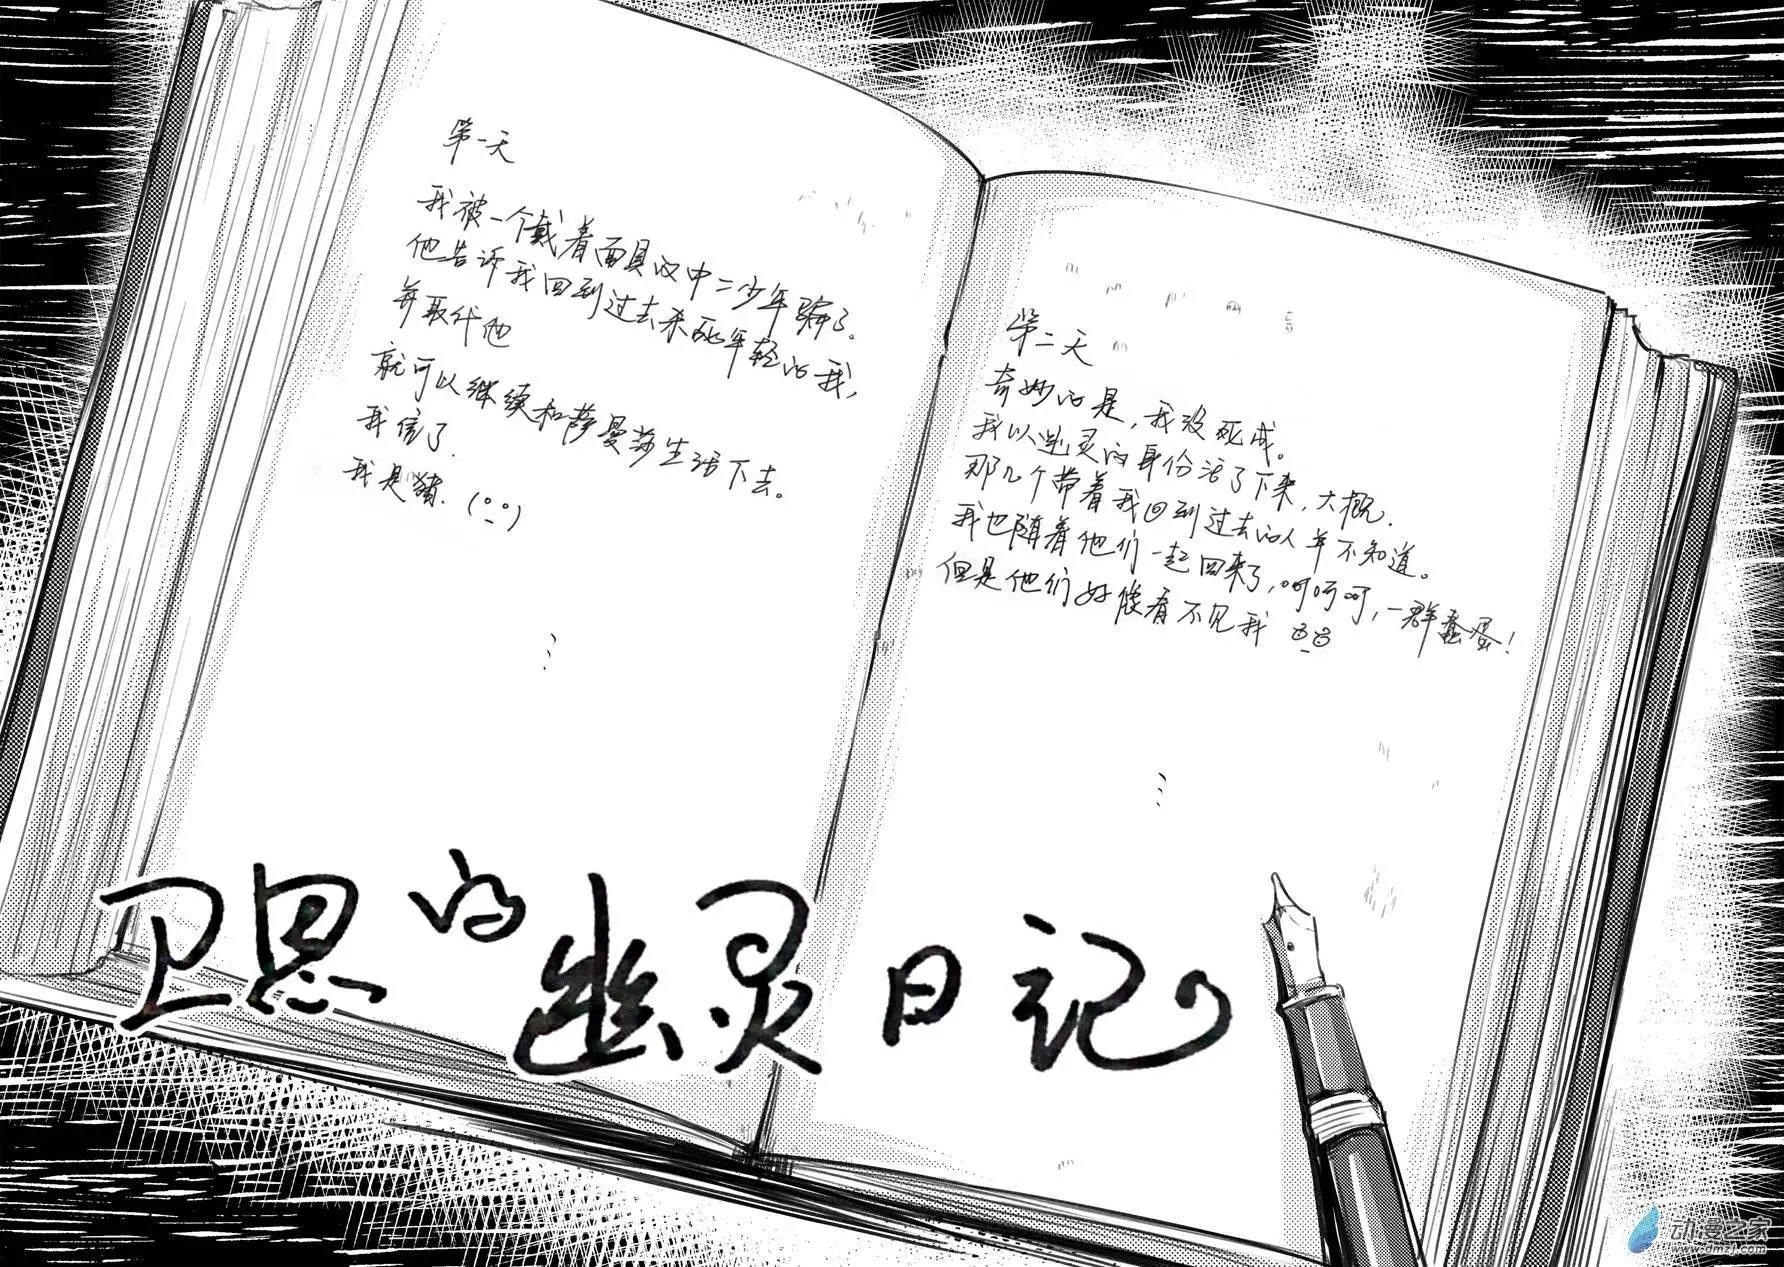 第一天
我被一个戴着面具的中二少年骗了。
他告诉我回到过去杀死年轻的我,
并取代他
就可以继续和萨曼莎生活下去。
我信了.
我是猪.(°_°)
...
第二天
奇妙的是,我没死成。
我以幽灵的身份活了下来,大概.
那几个带着我回到过去的人并不知道。
我也随着他们一起回来了,呵呵呵,一群蠢蛋!
但是他们好像看不见我
...
卫思的幽灵日记
动漫之家
www.dmzj.com